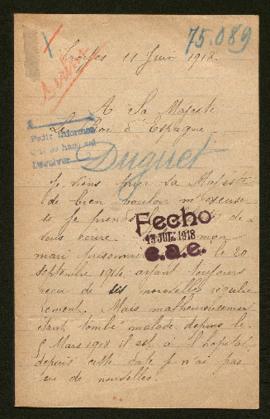 75.089
Troyes 11 Juin 1918.
A Sa Majesté
Le Roi d'Espagne.
Pedir informes
Devolver
Duguet
Je viens prier Sa Majesté
de bien vouloir m'excuser
si je prends la
vous écrire. mon
mari prisonnier le 20
septembre 1914 ayant toujours
reçu de ses nouvelles réguliè
rement. Mais malheureusement
étant tombé malade depuis le
5 Mars 1918 il est à l'hôpital,
depuis cette date je n'ai pas
eu de nouvelles.
Fecho
13 JUL. 1918
c.a.e.